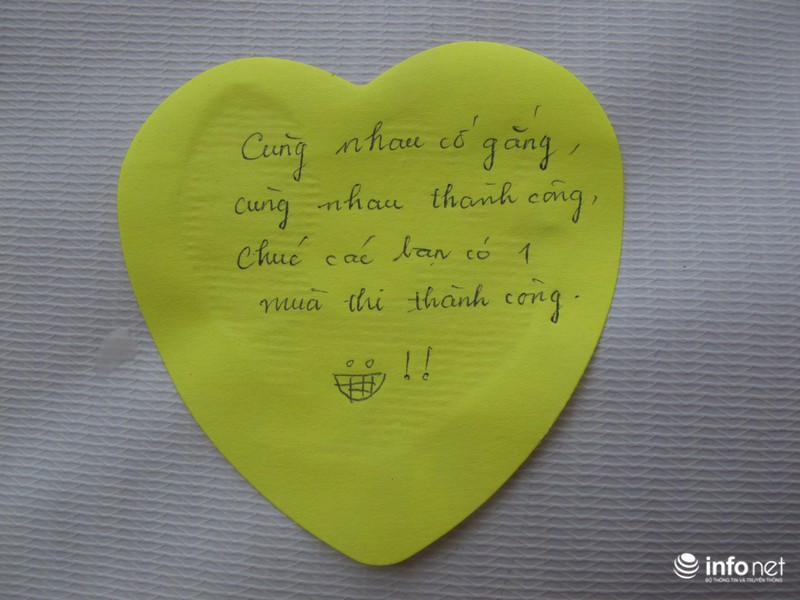 Cùng nhau cố gắng,
cùng nhau thành công,
Chúc các bạn có 1
mùa thi thành công.
!!
infonet
BỘ THÔNG TIN VÀ TRUYỀN THÔNG